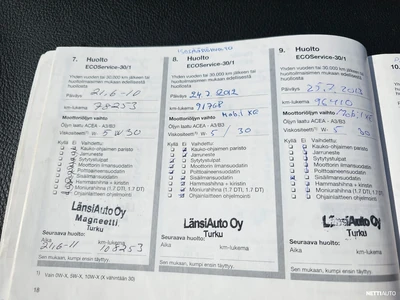 7. Huolto
ECOService-30/1
Yhden vuoden tai 30.000 km jälkeen tai
huoltoilmaisimen mukaan edellisestä
huollosta
Päiväys 21.6-10
km-lukema 78253
Moottoriöljyn vaihto
Öljyn laatu ACEA - A3/B3
Viskositeetti W- 5W30
Kyllä Ei Vaihdettu:
Kauko-ohjaimen paristo
Jarruneste
Sytytystulpat
Moottorin ilmansuodatin
Polttoainesuodatin
Sisäilmansuodatin
Hammashihna + kiristin
Moniurahihna (1.7 DT, 1.7 DT)
Ohjaustehostimen öljy
LänsiAuto Oy
Magneetti
Turku
Seuraava huolto:
Aika km-lukema
21.6-11 108253
Sen mukaan, kumpi ensin täyttyy.
8. Huolto
ECOService-30/1
Yhden vuoden tai 30.000 km jälkeen tai
huoltoilmaisimen mukaan edellisestä
huollosta
Päiväys 24.2.2012
km-lukema 91768
Moottoriöljyn vaihto Mobil
Öljyn laatu ACEA - A3/B3
Viskositeetti W- 5/30
Kyllä Ei Vaihdettu:
Kauko-ohjaimen paristo
Jarruneste
Sytytystulpat
Moottorin ilmansuodatin
Polttoainesuodatin
Sisäilmansuodatin
Hammashihna + kiristin
Moniurahihna (1.7 DT, 1.7 DT)
Ohjaustehostimen öljy
LänsiAuto Oy
Turku
Seuraava huolto:
Aika km-lukema
Sen mukaan, kumpi ensin täyttyy.
9. Huolto
ECOService-30/1
Yhden vuoden tai 30.000 km jälkeen tai
huoltoilmaisimen mukaan edellisestä
huollosta
Päiväys
km-lukema 96410
Moottoriöljyn vaihto Mobil
Öljyn laatu ACEA - A3/B3
Viskositeetti W- 5 30
Kyllä Ei Vaihdettu:
Kauko-ohjaimen paristo
Jarruneste
Sytytystulpat
Moottorin ilmansuodatin
Polttoainesuodatin
Sisäilmansuodatin
Hammashihna + kiristin
Moniurahihna (1.7 DT, 1.7 DT)
Ohjaustehostimen öljy
LänsiAuto Oy
Turku
Seuraava huolto:
Aika km-lukema
Sen mukaan, kumpi ensin täyttyy.
10.
1) Vain 0W-X, 5W-X, 10W-X (X vähintään 30)
18
NETTIAUTO